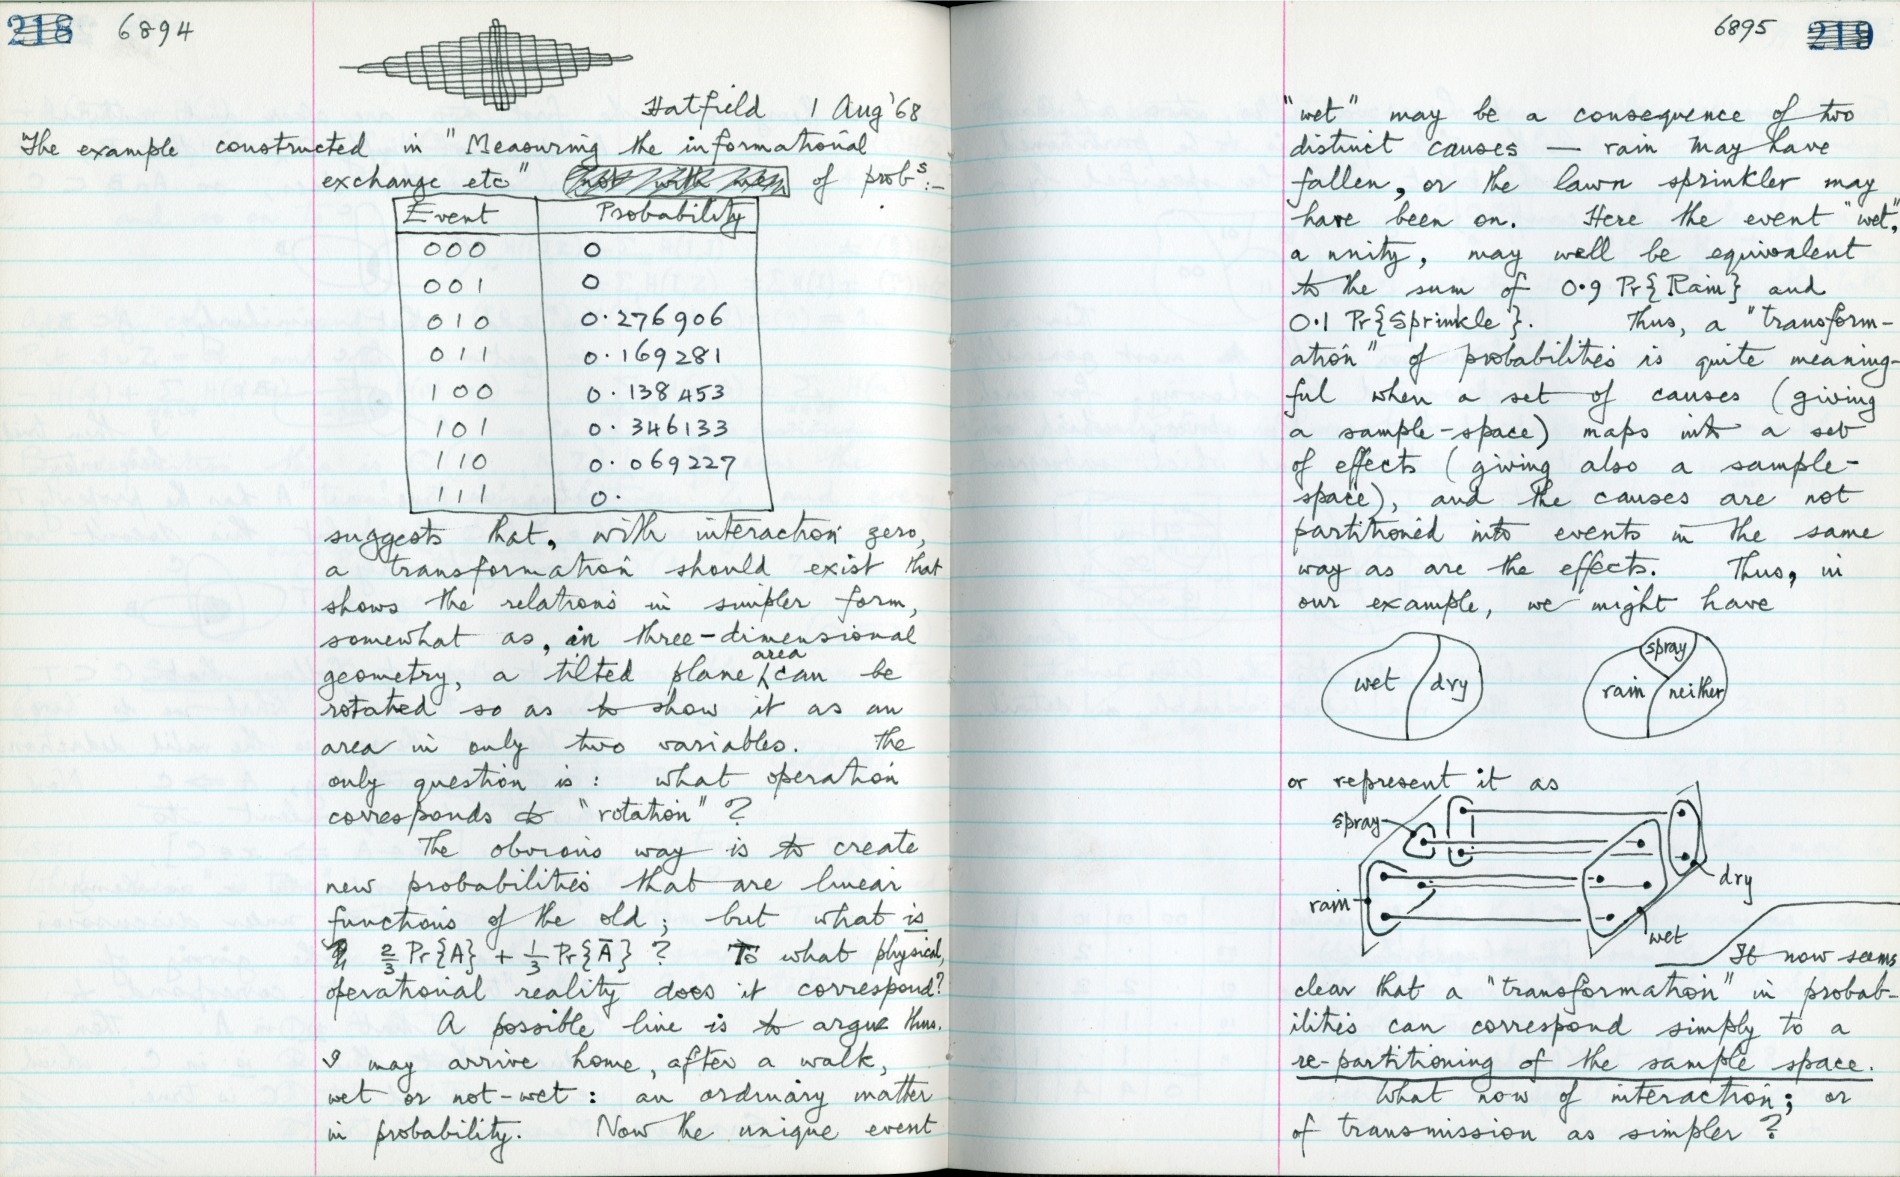 218 6894
Hatfield 1 Aug '68
The example constructed in "Measuring the informational
exchange etc" of probs:-
Event Probability
000 0
001 0
010 0.276906
011 0.169281
100 0.138453
101 0.346133
110 0.069227
111 0.
suggests that, with interaction zero,
a transformation should exist that
shows the relations in simpler form,
somewhat as, in three-dimensional
area
geometry, a tilted plane can be
rotated so as to show it as an
area in only two variables. The
only question is: what operation
corresponds to "rotation"?
The obvious way is to create
new probabilities that are linear
functions of the old; but what is
⅔ Pr{A} + ⅓ Pr{Ā}? To what physical,
operational reality does it correspond?
A possible line is to argue thus.
I may arrive home, after a walk,
wet or not-wet: an ordinary matter
in probability. Now the unique event
6895 219
"wet" may be a consequence of two
distinct causes — rain may have
fallen, or the lawn sprinkler may
have been on. Here the event "wet",
a unity, may well be equivalent
to the sum of 0.9 Pr{Rain} and
0.1 Pr{Sprinkle}. Thus, a "transform-
ation" of probabilities is quite meaning-
ful when a set of causes (giving
a sample-space) maps into a set
of effects (giving also a sample-
space), and the causes are not
partitioned into events in the same
way as are the effects. Thus, in
our example, we might have
wet dry spray rain neither
or represent it as
spray
rain
dry
wet
It now seems
clear that a "transformation" in probab-
ilities can correspond simply to a
re-partitioning of the sample space.
What now of interaction; or
of transmission as simpler?